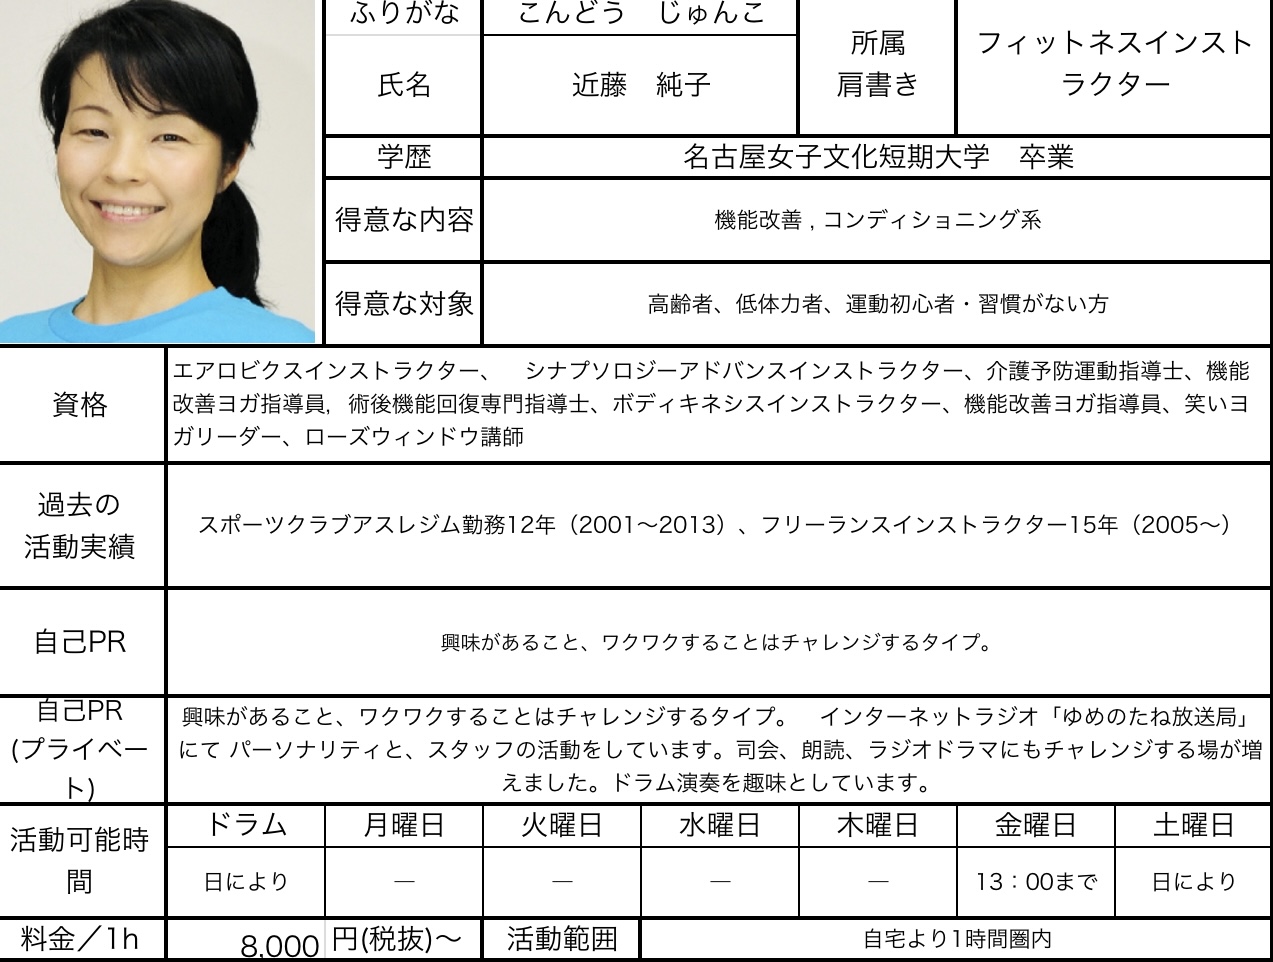 ふりがな
こんどう　じゅんこ
氏名
近藤　純子
所属
肩書き
フィットネスインスト
ラクター
学歴
名古屋女子文化短期大学　卒業
得意な内容
機能改善 , コンディショニング系
得意な対象
高齢者、低体力者、運動初心者・習慣がない方
資格
エアロビクスインストラクター、　シナプソロジーアドバンスインストラクター、介護予防運動指導士、機能
改善ヨガ指導員,　術後機能回復専門指導士、ボディキネシスインストラクター、機能改善ヨガ指導員、笑いヨ
ガリーダー、ローズウィンドウ講師
過去の
活動実績
スポーツクラブアスレジム勤務12年（2001〜2013）、フリーランスインストラクター15年（2005〜）
自己PR
興味があること、ワクワクすることはチャレンジするタイプ。
自己PR
(プライベー
ト)
興味があること、ワクワクすることはチャレンジするタイプ。　インターネットラジオ「ゆめのたね放送局」
にて パーソナリティと、スタッフの活動をしています。司会、朗読、ラジオドラマにもチャレンジする場が増
えました。ドラム演奏を趣味としています。
活動可能時
間
ドラム
月曜日
火曜日
水曜日
木曜日
金曜日
土曜日
日により
—
—
—
—
13：00まで
日により
料金／1h
8,000
円(税抜)〜
活動範囲
自宅より1時間圏内